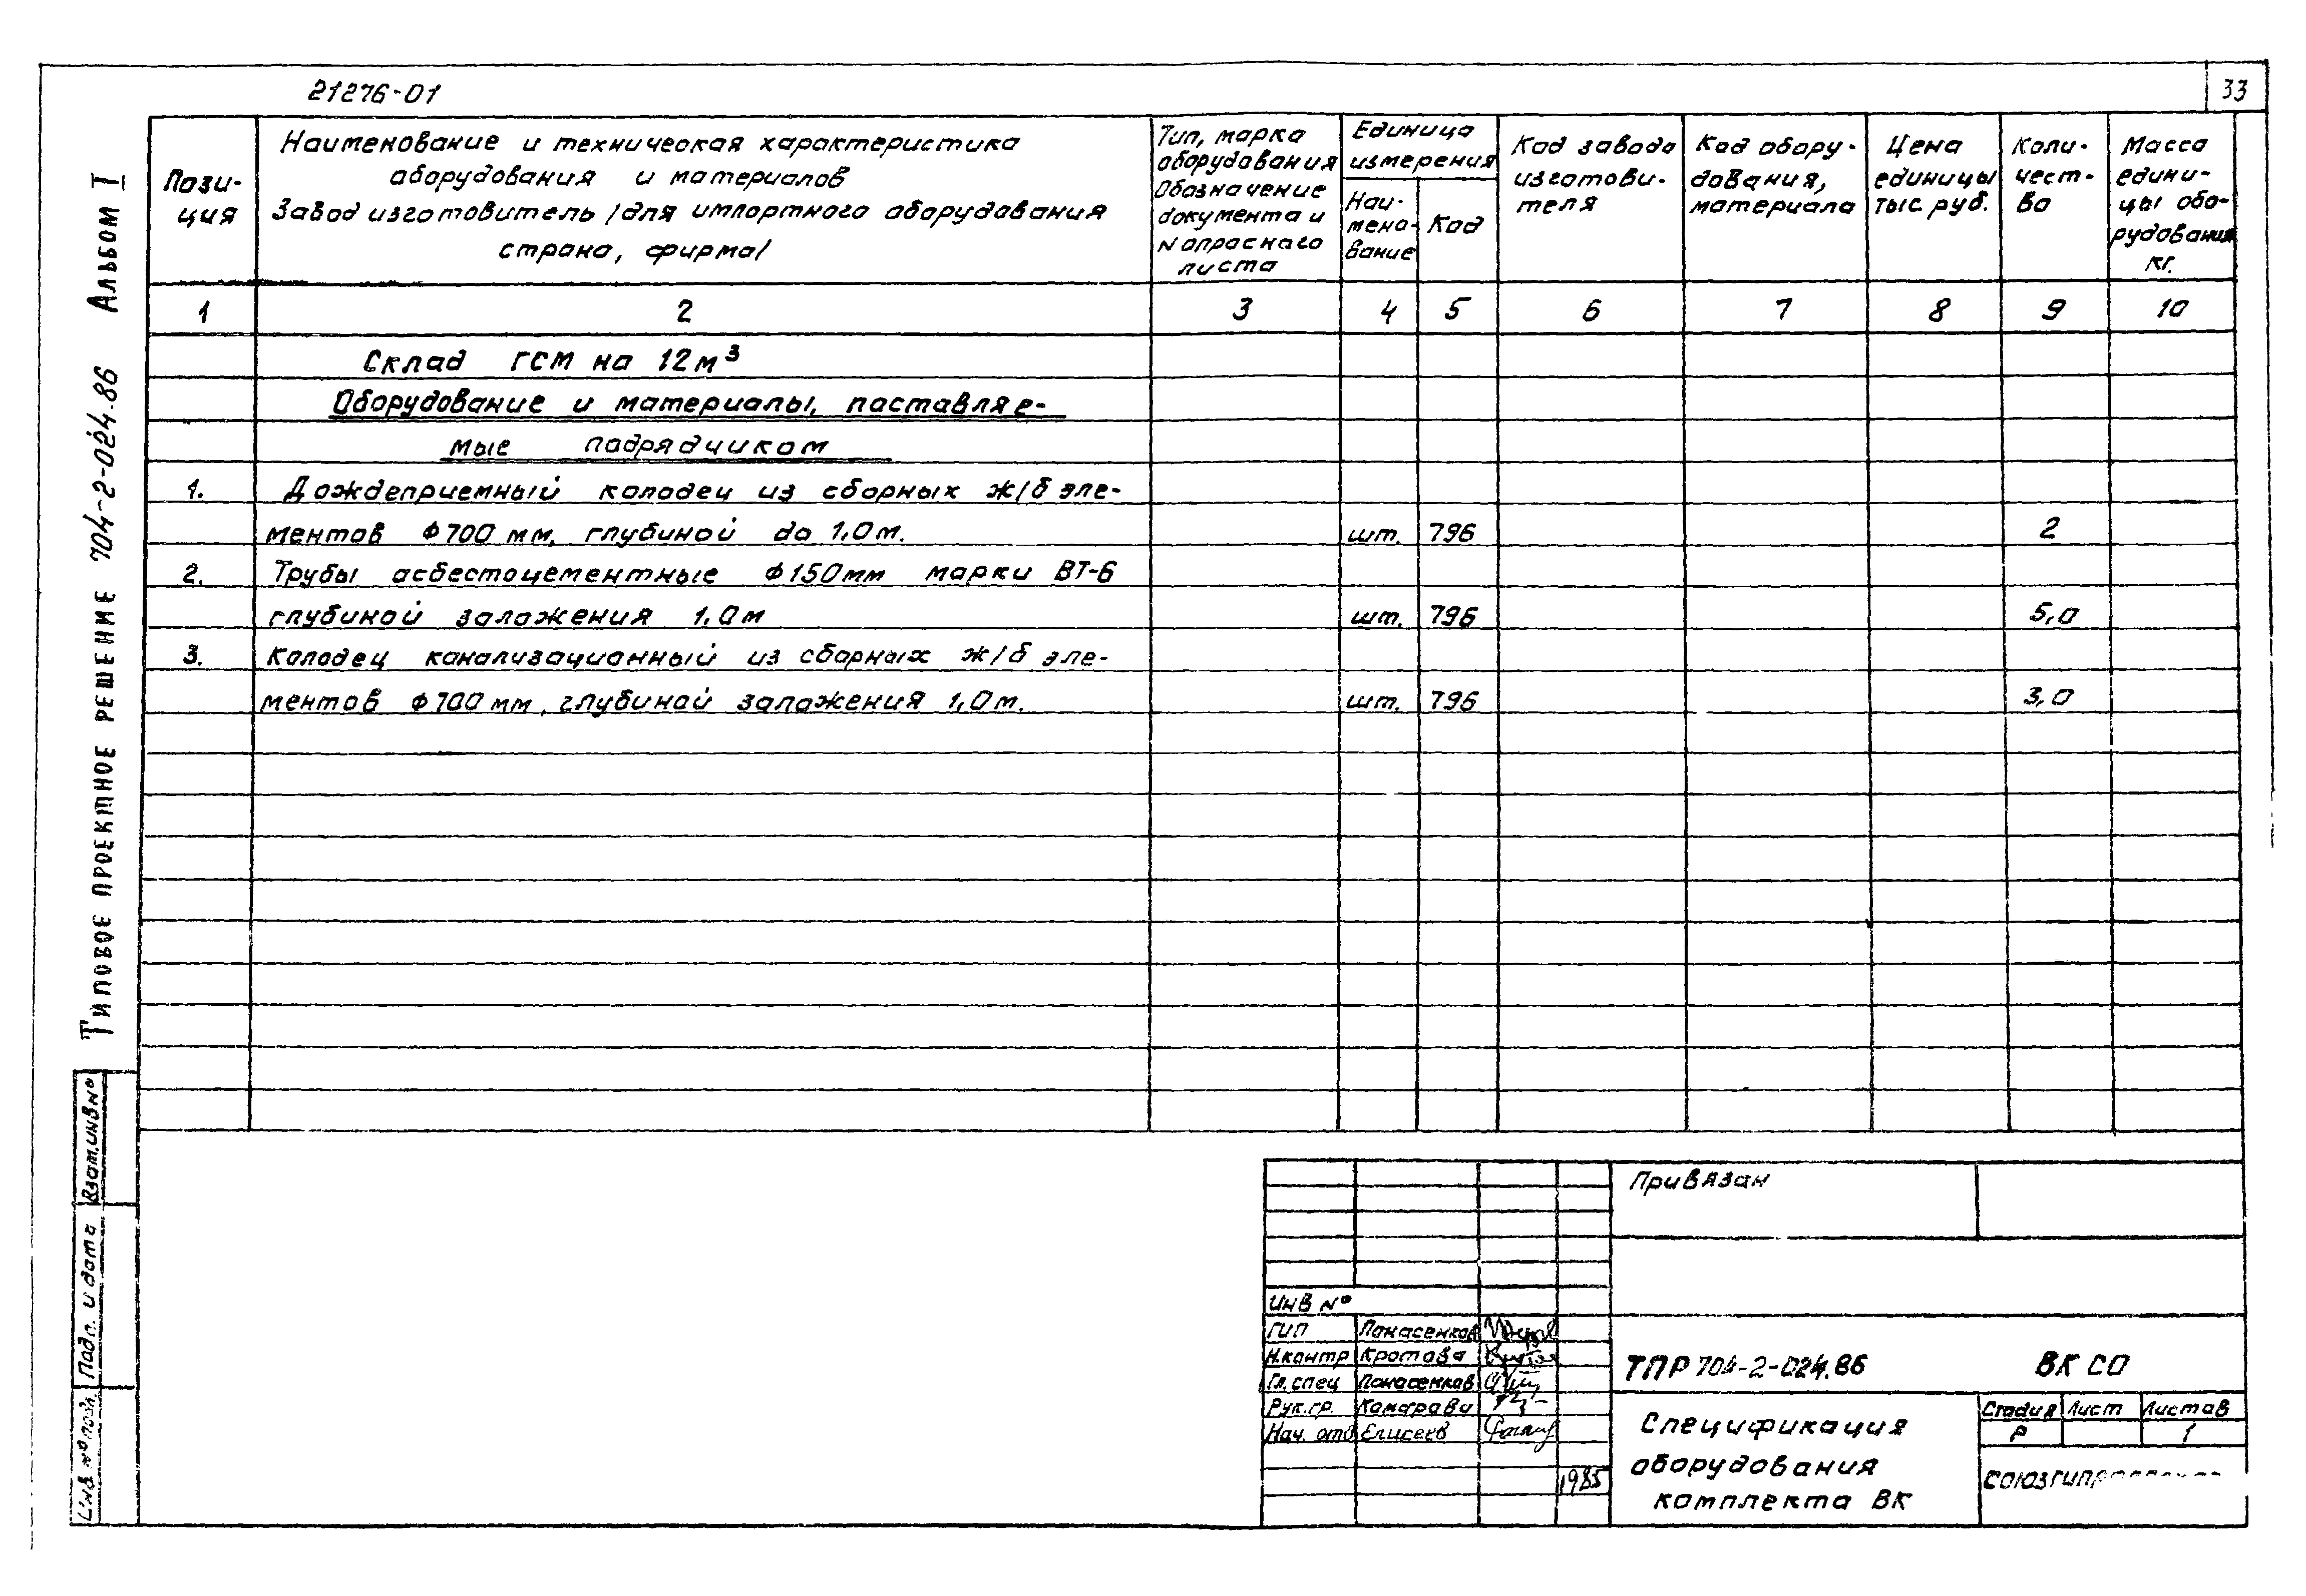 21276-01
33
Пози-
ция
Наименование и техническая характеристика
оборудования и материалов
Завод изготовитель /для импортного оборудования
страна, фирма/
Тип, марка
оборудования
Обозначение
документа и
N опросного
листа
Единица
измерения
Наи-
мено-
вание
Код
Код завода
изготови-
теля
Код обору-
дования,
материала
Цена
единицы
тыс. руб.
Коли-
чест-
во
Масса
едини-
цы обо-
рудования
кг.
1 2 3 4 5 6 7 8 9 10
Склад ГСМ на 12м³
Оборудование и материалы, поставляе-
мые подрядчиком
1. Дождеприемный колодец из сборных ж/б эле-
ментов Ф700 мм, глубиной до 1,0м. шт. 796 2
2. Трубы асбестоцементные Ф150мм марки ВТ-6
глубиной заложения 1.0м шт. 796 5,0
3. Колодец канализационный из сборных ж/б эле-
ментов Ф700 мм, глубиной заложения 1,0м. шт. 796 3,0
Типовое проектное решение 704-2-024.86 Альбом I
Взам.инв№
Подп. и дата
Инв №подл.
Привязан
Инв №
ГИП Панасенков
Н.контр Кротова
Гл.спец Панасенков
Рук.гр. Комарова
Нач. отд Елисеев
1985
ТПР 704-2-024.86 ВК СО
Спецификация
оборудования
комплекта ВК
Стадия Лист Листов
Р 1